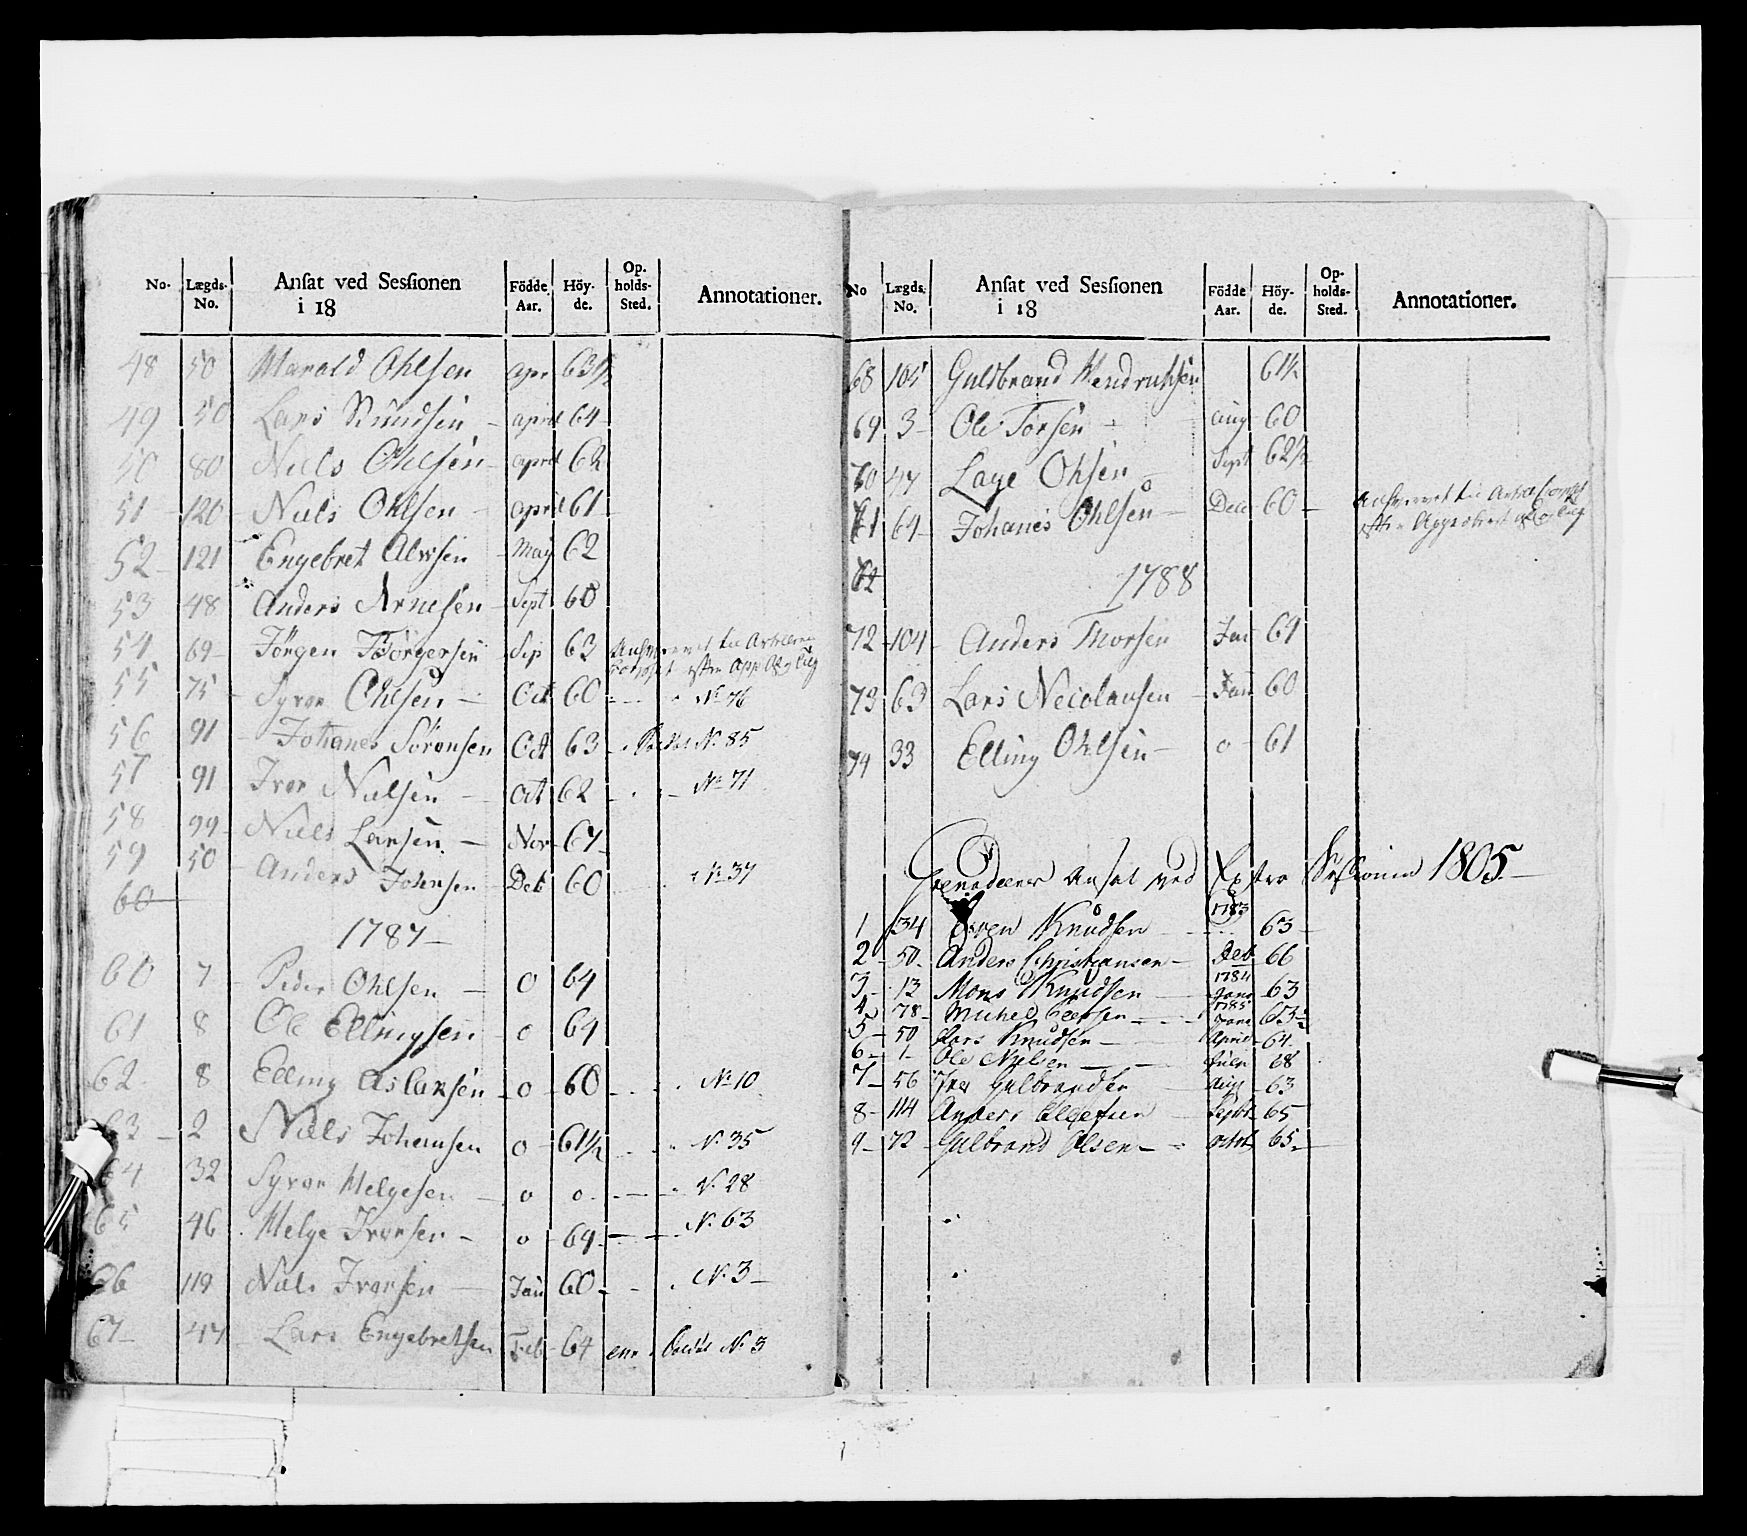 No. Lægds-No. Ansat ved Sessionen i 18 Födde Aar. Höy-de. Op-holds-Sted. Annotationer.
48 50 Harald Ohlsen apr 63½
49 50 Lars Knudsen - april 64
50 80 Niels Ohlsen - april 62
51 120 Niels Ohlsen - april 61
52 121 Engebret Alvsen - May 62
53 48 Anders Arnesen - Sept 60
54 69 Jörgen Börgersen Sep 63
55 75 Syver Ohlsen - Oct 60 " No 76
56 91 Johanes Sörensen Oct 63 No 85
57 91 Iver Nielsen - Oct 62 No 71
58 99 Niels Larsen - Nov 67
59 50 Anders Johnsen - Deb 60 " No 37
60
1787
60 7 Peder Ohlsen - 0 64
61 8 Ole Ellingsen - 0 64
62 8 Elling Aslaksen - 0 60 " No 10
63 2 Niels Johansen 0 61½ " No 35
64 32 Syver Helgesen - 0 0 " No 28
65 46 Helge Iversen - 0 64 No 63
66 119 Niels Iversen - Jan 60 " No 3
67 47 Lars Engebretsen Feb 64 No 3
No Lægds-No. Ansat ved Sessionen i 18 Födde Aar. Höy-de. Op-holds-Sted. Annotationer.
68 105 Gulbrand Hendrichsen 61½
69 3 Ole Torsen - aug 60
70 47 Lage Ohlsen - Sept 62½
71 64 Johanes Ohlsen - Dec 60
72
1788
72 104 Anders Thorsen Jan 64
73 63 Lars Necolausen - Jan 60
74 33 Elling Ohlsen - 0 61
Grenaderer Ansat ved Extra Sessionen 1805
1783
1 134 Sven Knudsen 63
2 50 Anders Christiansen - Deb 66
1784
3 12 Mons Knudsen Janr 63
1785
4 78 Michel Janr 63½
5 50 Lars Knudsen April 64
6 1 Ole Nielsen July 68
7 56 Iver Gulbrandsen Aug 63
8 114 Anders Ellefsen Septbr 65
9 72 Gulbrand Olsen - octob 65